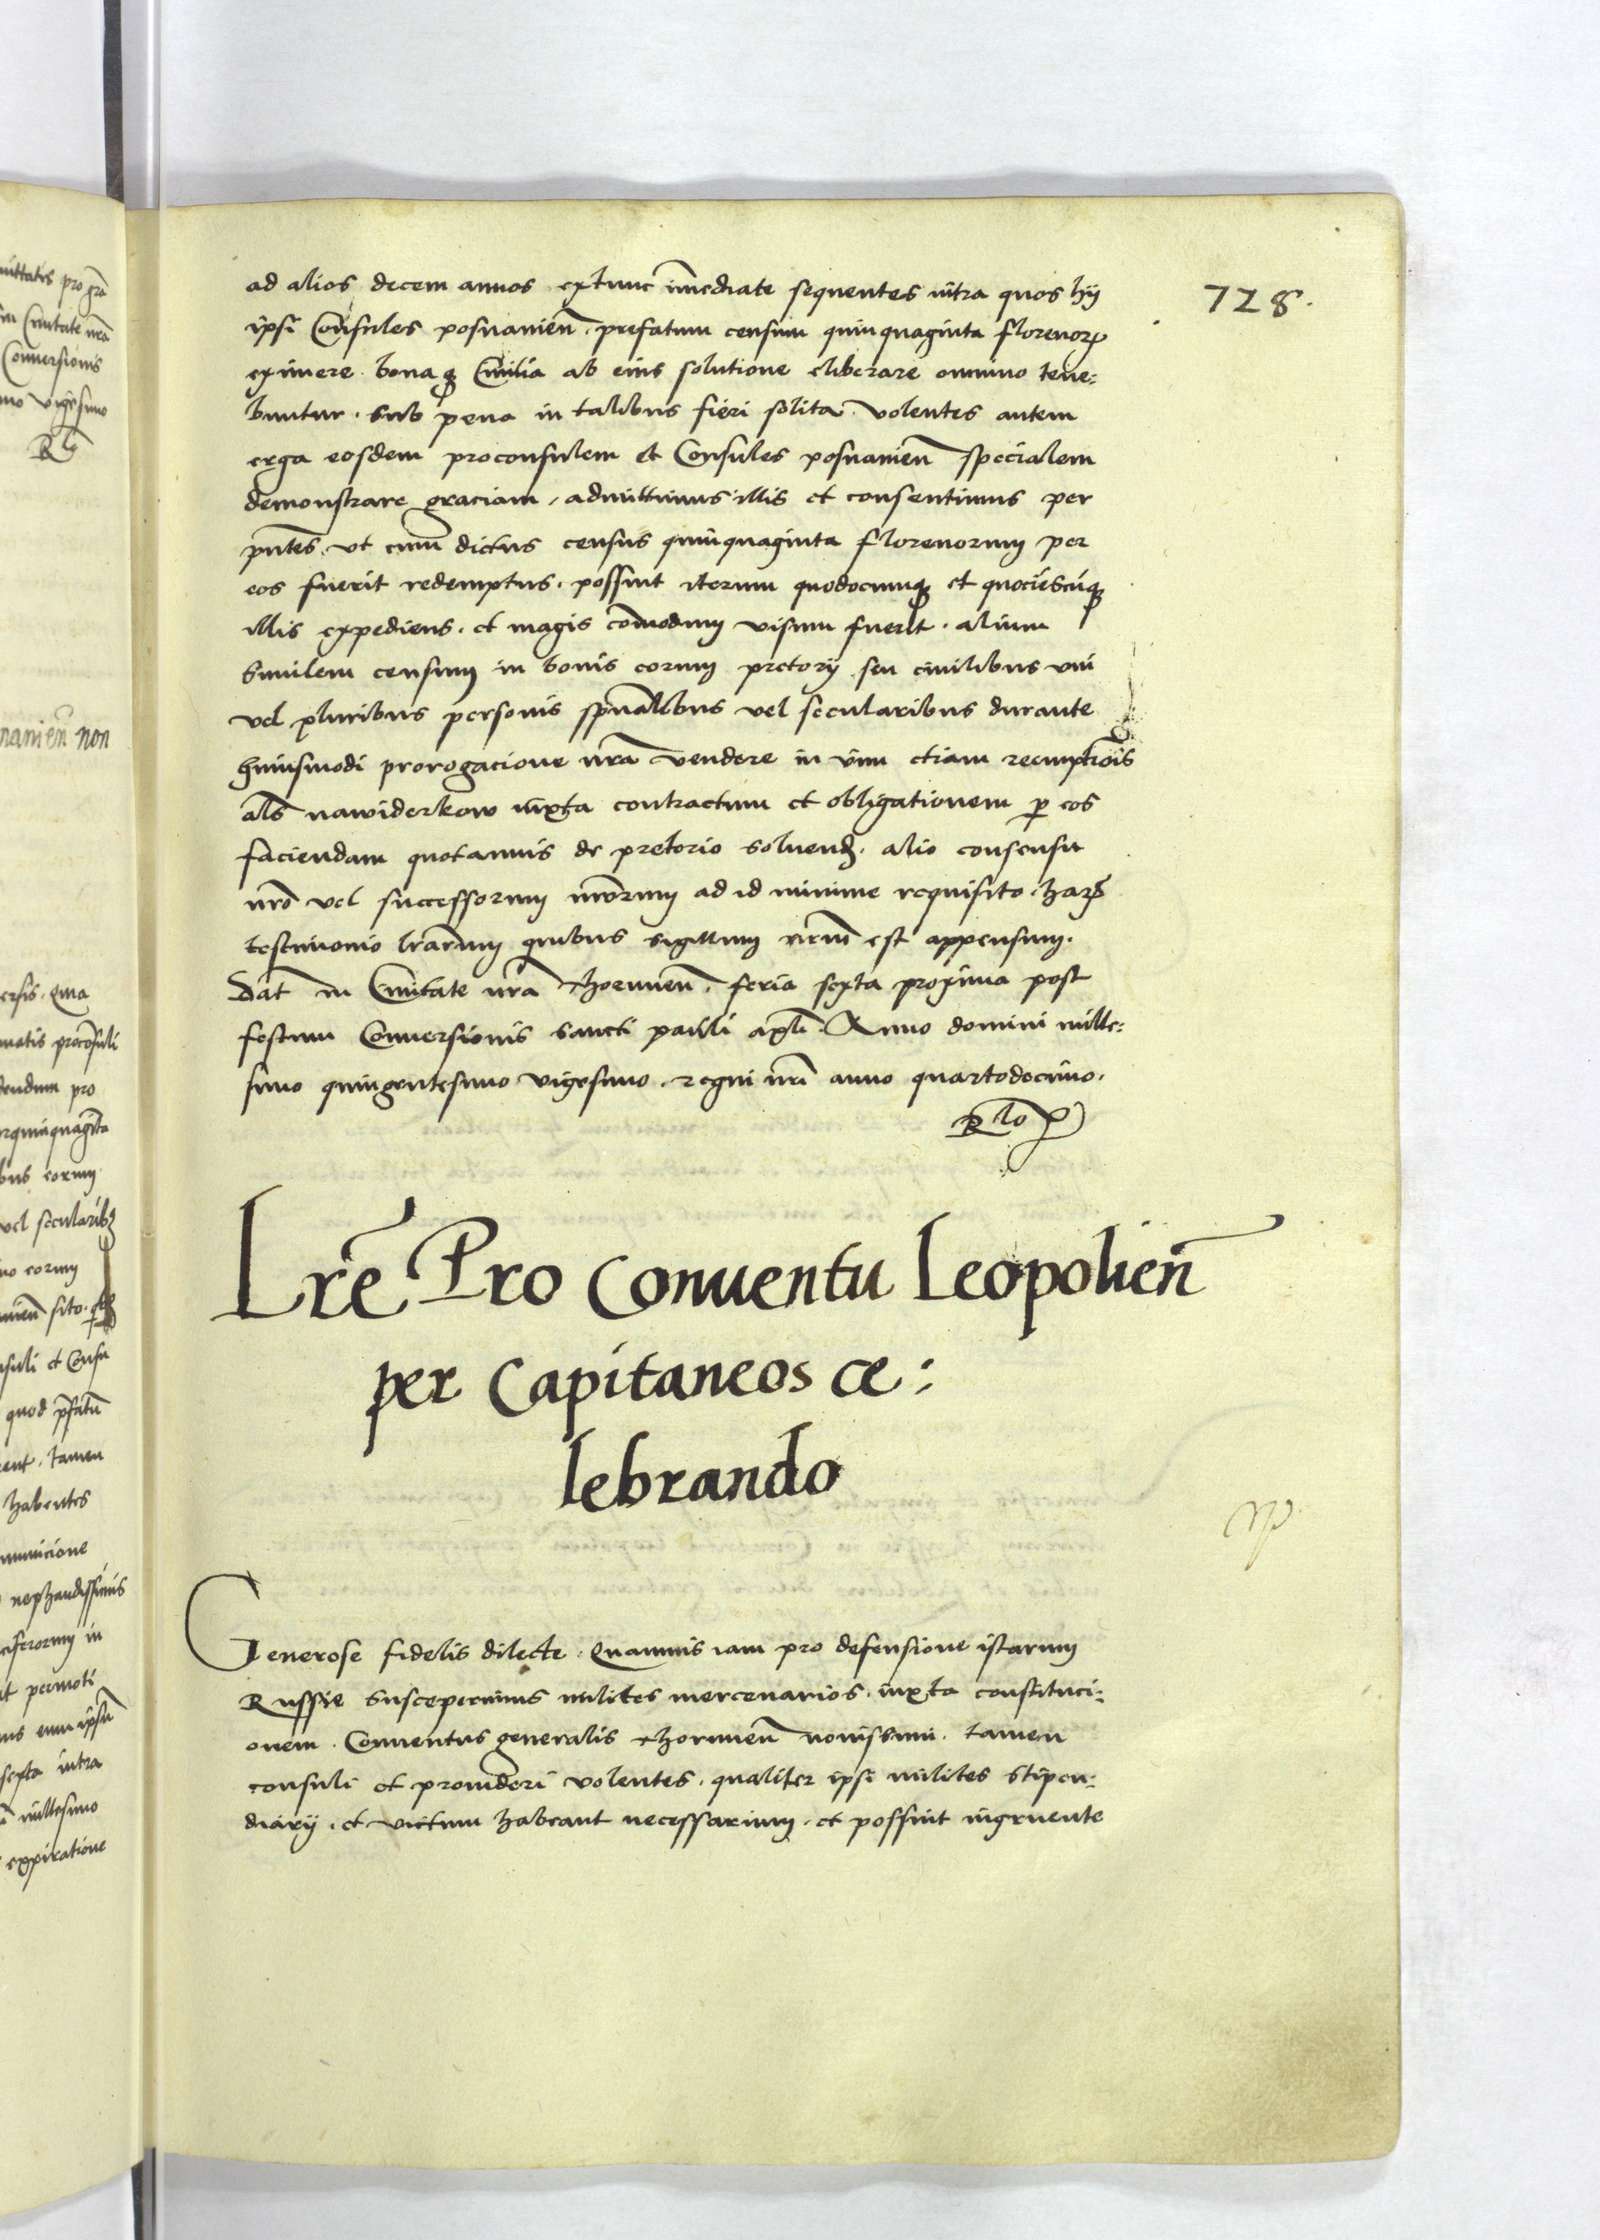 728.
ad alios decem annos extunc im̄ediate sequentes intra quos hÿ
ipsi Consules posnanien̄ . prefatum censum quinquaginta florenoꝝ
eximere bonaqꝫ Ciuilia ab eius solutione eliberare omnino tene:
buntur . sub pena in talibus fieri solita . volentes autem
erga eosdem proconsulem et Consules posnanien̄ specialem
demonstrare graciam , admittimus illis et consentimus per
pn̄tes . vt cum dictus census quinquaginta florenorum per
eos fuerit redemptus . possint iterum quodocumqꝫ et quociescu̇qꝫ
illis expediens . et magis com̄odum visum fuerit . alium
similem censum in bonis eorum pretorÿ seu ciuilibus vni
vel pluribus personis spūalibus vel secularibus durante
huiusmodi prorogacione nr̄a vendere in vim etiam reempt̄iōis
al̄s nawiderkow iuxta contractum et obligationem ꝑ eos
faciendam quotannis de pretorio soluend̄ . alio consensu
nr̄o vel successorum nr̄orum ad id minime requisito . haꝝ
testimonio lr̄arum quibus sigillum nr̄um est appensum .
Dat̄ in Ciuitate nr̄a Thorunien̄ . feria sexta proxima post
festum Conuersionis sancti pauli apl̄i . Anno domini mille:
simo quingentesimo vigesimo . regni nr̄i anno quartodecimo .
Rlo p
Lrē Pro Conuentu Leopolien̄
per Capitaneos ce:
lebrando
Generose fidelis dilecte . Quamuis iam pro defensione istarum
Russie suscepimus milites mercenarios . iuxta constituci:
onem . Conuentus generalis Thorunien̄ nouissimi . tamen
consuli et prouideri volentes . qualiter ipsi milites stipen:
diarÿ . et victum habeant necessarium . et possint ingruente